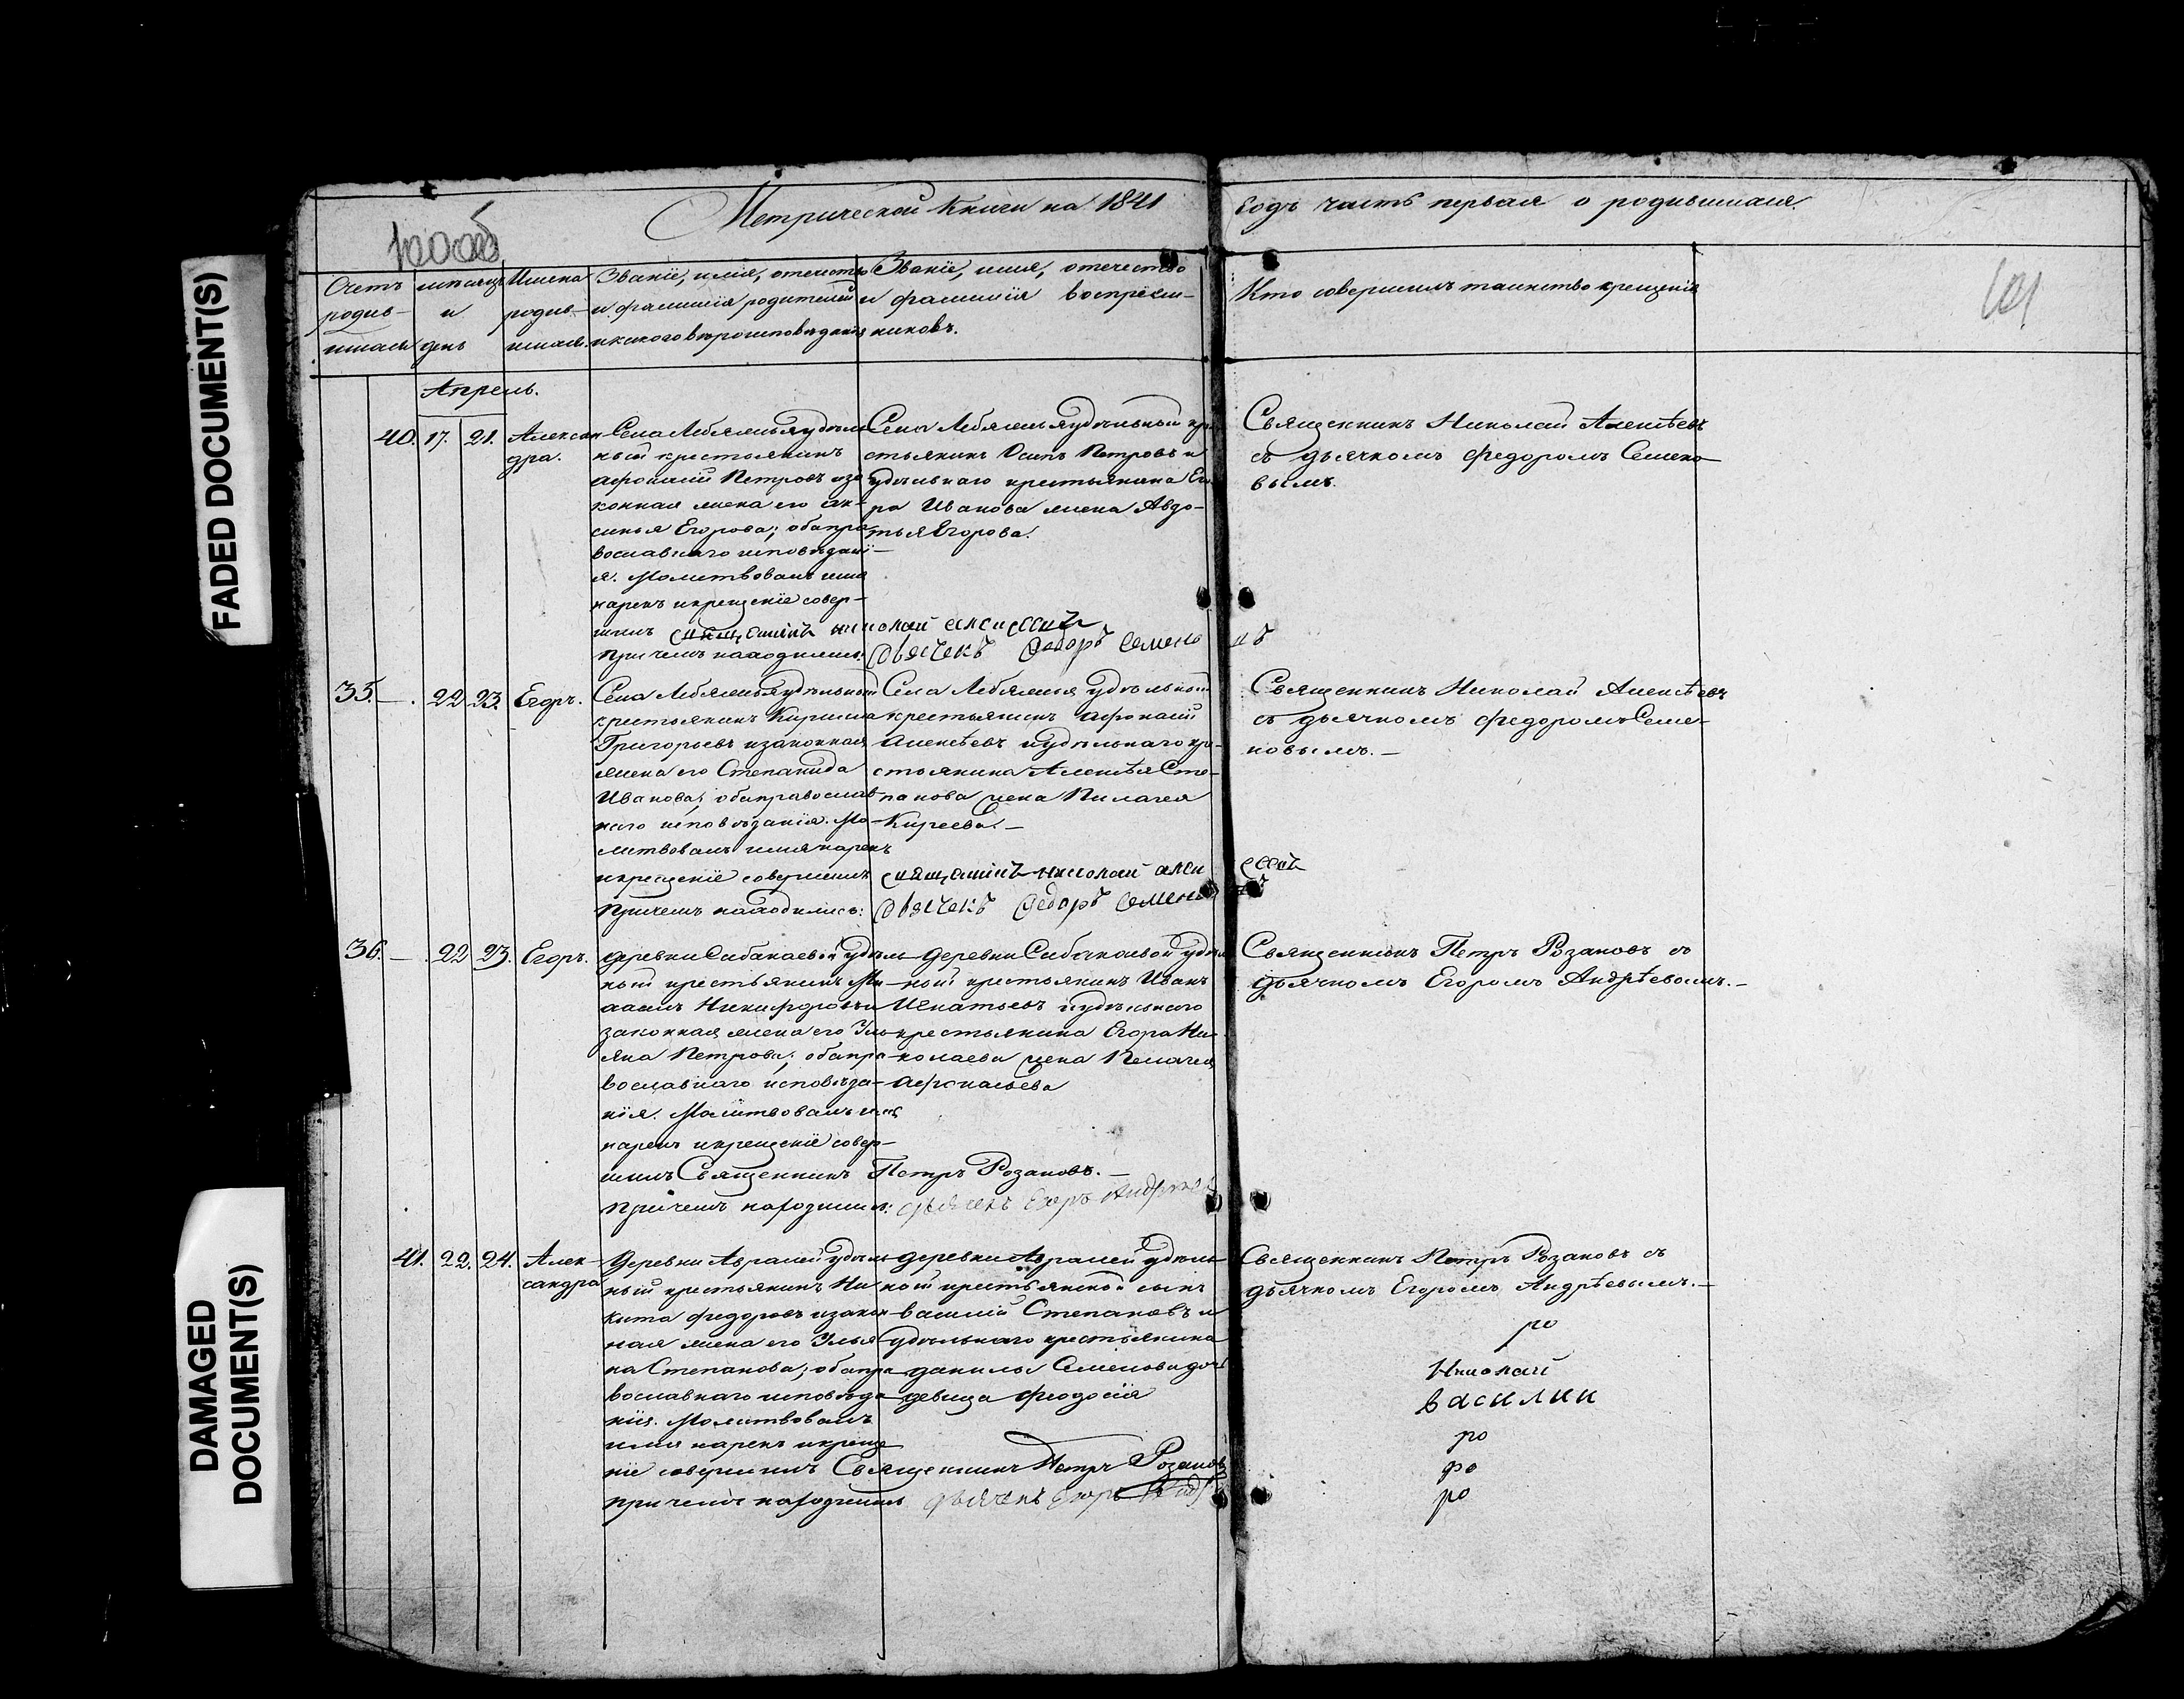 FADED DOCUMENT(S)
DAMAGED
DOCUMENT(S)
Метрической Книги на 1841
годъ часть первая о родившихся.
101
Счетъ
родив-
шихся
мѣсяцъ
и
день
Имена
родив-
шихся.
Званіе, имя, отечество
и фамилія родителей
и какого вѣроисповѣданія
Званіе, имя, отечество
и фамилія воспріем-
никовъ.
Кто совершилъ таинство крещенія
Апрель.
40. 17. 21.
Алексан-
дра.
Села Лебяжья удѣль-
ный крестьянинъ
Афонасій Петровъ и за-
конная жена его Ак-
синья Егорова; оба пра-
вославнаго исповѣдані-
я. Молитвовалъ имя
нарекъ и крещеніе совер-
шилъ священникъ николай алексеевъ
При чемъ находились: Дьячекъ Федоръ Семено
въ
Села Лебяжья удѣльной кре-
стьянинъ Осипъ Петровъ и
удѣльнаго крестьянина Его-
ра Иванова жена Авдо-
тья Егорова.
Священникъ Николай Алексѣевъ
съ дьячкомъ Федоромъ Семено-
вымъ.
35. — 22 23. Егоръ.
Села Лебяжья удѣльный
крестьянинъ Кирила
Григорьевъ и законная
жена его Степанида
Иванова; оба православ-
наго исповѣданія. Мо-
литвовалъ имя нарекъ
и крещеніе совершилъ священникъ николай алексеевъ
При чемъ находились: Дьячекъ Федоръ Семено
Села Лебяжья удѣльной
крестьянинъ Афонасій
Алексѣевъ и удѣльнаго кре-
стьянина Алексѣя Сте-
панова жена Пилагея
Киреева. —
Священникъ Николай Алексѣевъ
съ дьячкомъ Федоромъ Семе-
новымъ. —
36. — 22 23. Егоръ.
деревни Сабакаевой удѣль-
ный крестьянинъ Ми-
хаилъ Никифоровъ и
законная жена его Уль-
яна Петрова; оба пра-
вославнаго исповѣда-
нія. Молитвовалъ имя
нарекъ и крещеніе совер-
шилъ Священникъ Петръ Розановъ. —
При чемъ находились: дьячекъ Егоръ Андреев
деревни Сабакаевой удѣль-
ной крестьянинъ Иванъ
Игнатьевъ и удѣльнаго
крестьянина Егора Ни-
колаева жена Пелагея
Афонасьева
Священникъ Петръ Розановъ съ
дьячкомъ Егоромъ Андрѣевымъ. —
41. 22. 24.
Алек-
сандра
Деревни Авралей удѣль-
ный крестьянинъ Ни-
кита Федоровъ и закон-
ная жена его Улья-
на Степанова; оба пра-
вославнаго исповѣда-
нія. Молитвовалъ
имя нарекъ и креще-
ніе совершилъ Священникъ Петръ Розановъ
При чемъ находились дьячекъ Егоръ
деревни Авралей удѣль-
ной крестьянской сынъ
Василій Степановъ и
удѣльнаго крестьянина
Данилы Семенова дочь
девица Феодосія
Священникъ Петръ Розановъ съ
дьячкомъ Егоромъ Андрѣевымъ. —
ро
Николай
василии
ро
фо
ро